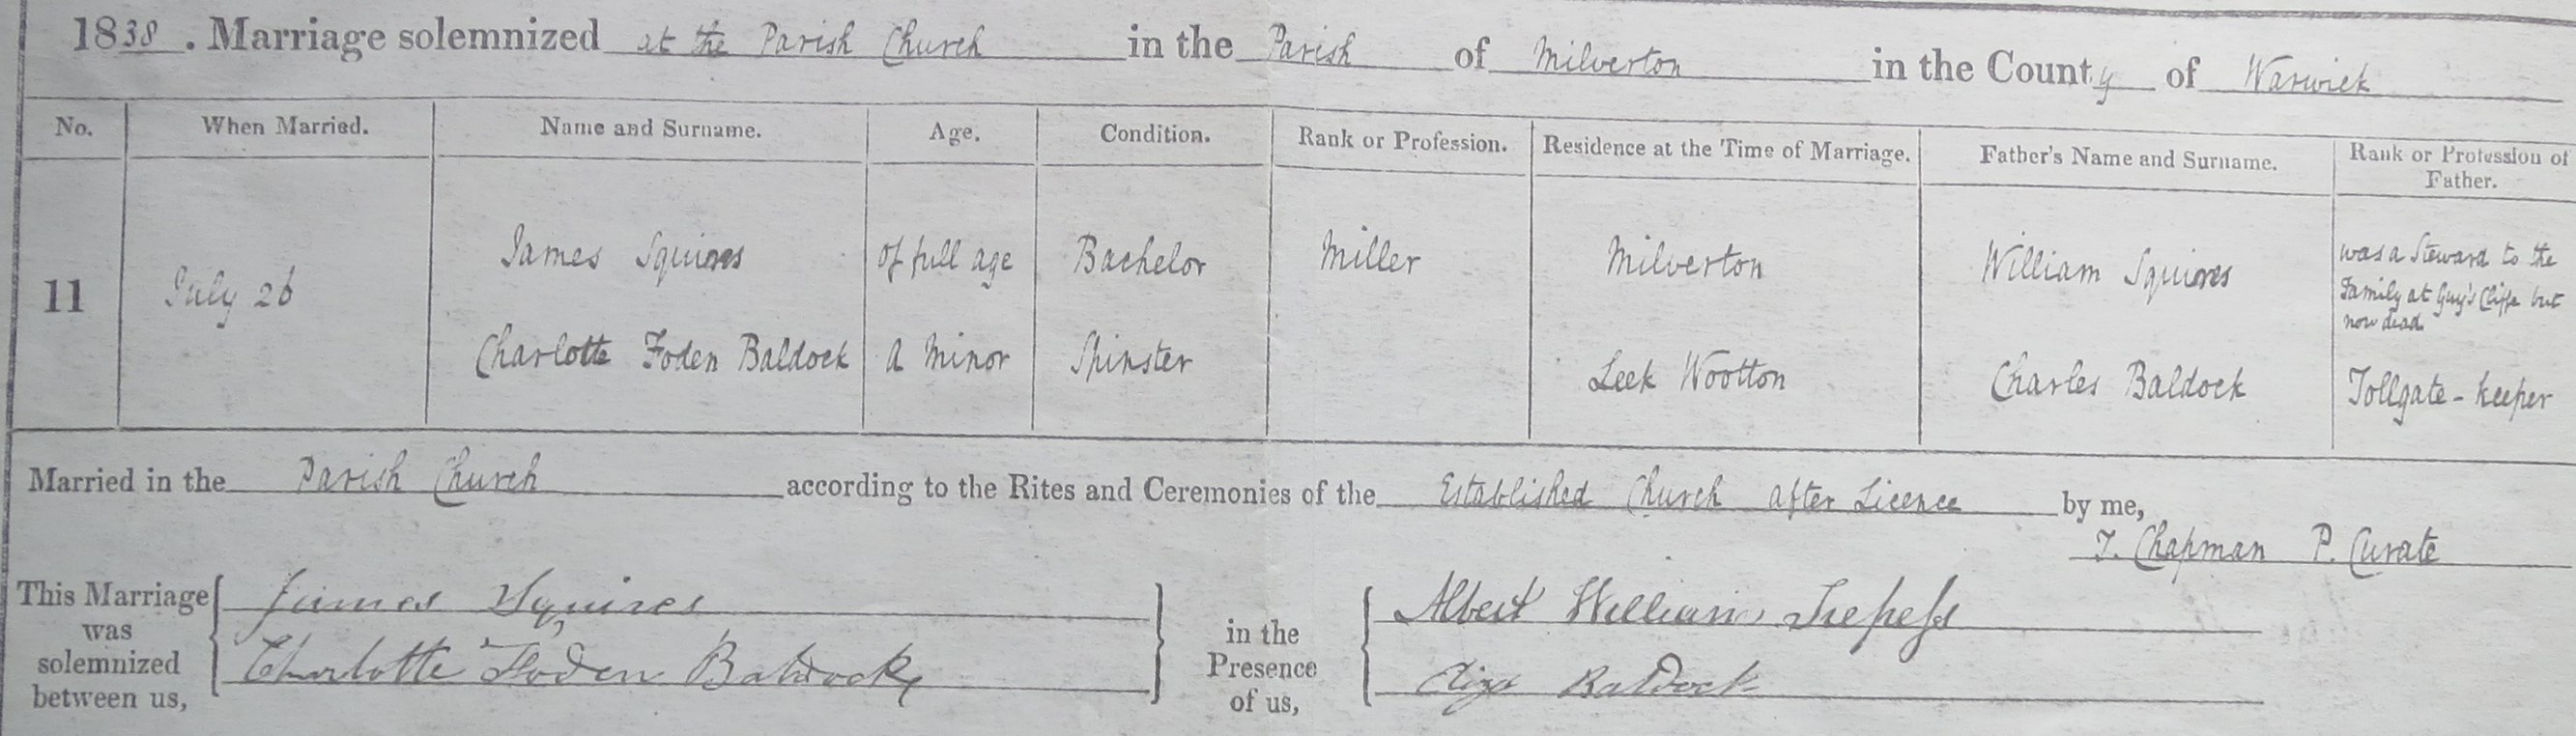 1838. Marriage solemnized at the Parish Church in the Parish of Milverton in the County of Warwick
No. When Married. Name and Surname. Age. Condition. Rank or Profession. Residence at the Time of Marriage. Father's Name and Surname. Rank or Profession of Father.
11 July 26 James Squires of full age Bachelor Miller Milverton William Squires was a Steward to the Family at Guy's Cliffe but now dead.
Charlotte Foden Baldock a minor Spinster Leek Wootton Charles Baldock Tollgate-keeper
Married in the Parish Church according to the Rites and Ceremonies of the Established Church after Licence by me,
T. Chapman P. Curate
This Marriage was solemnized between us, James Squires in the Presence of us, Albert William
Charlotte Foden Baldock Eliza Baldock